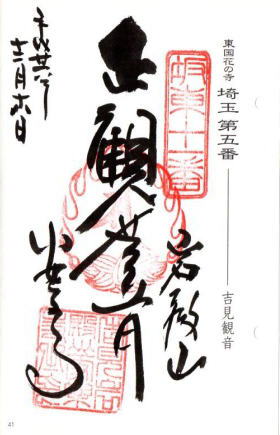 東国花の寺 埼玉 第五番 ── 吉見観音
坂東十一番
岩殿山
正観世音
安楽寺
平成廿
十二月六日
41